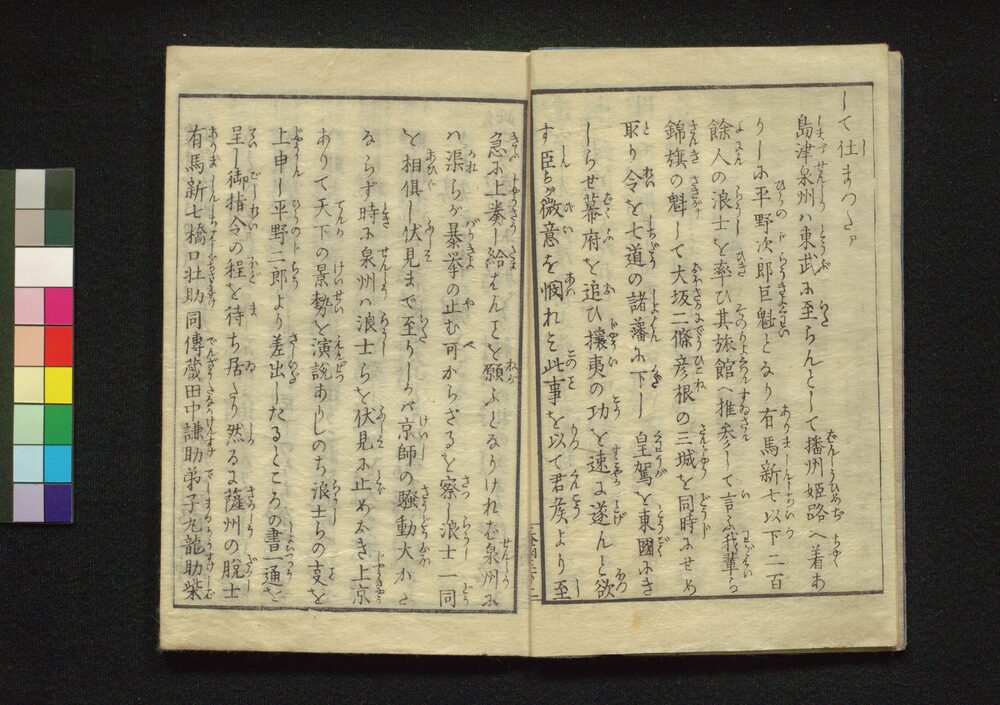 して仕まつたァ
島津泉州ハ東武に至らんとして播州姫路へ着あ
りしに平野次郎巨魁となり有馬新七以下二百
餘人の浪士を率ひ其旅館へ推参して言ふ我輩ら
錦旗の魁して大坂二條彦根の三城を同時にせめ
取り令を七道の諸藩に下し 皇駕を東國にき
しらせ幕府を追ひ攘夷の功を速に遂んと欲
す臣らが微意を憫れミ此事を以て君矦より至
急に上奏し給はんことを願ふとなりけれバ泉州に
ハ渠らが暴挙の止む可からざるを察し浪士一同
を相俱し伏見まで至りしが京師の騒動大かた
ならず時に泉州ハ浪士らを伏見に止めおき上京
ありて天下の景勢を演説ありしのち浪士らの支を
上申し平野二郎より差出したるところの書一通を
呈し御指令の程を待ち居たり然るに薩州の脱士
有馬新七橋口壮助同傳蔵田中謙助弟子丸龍助柴